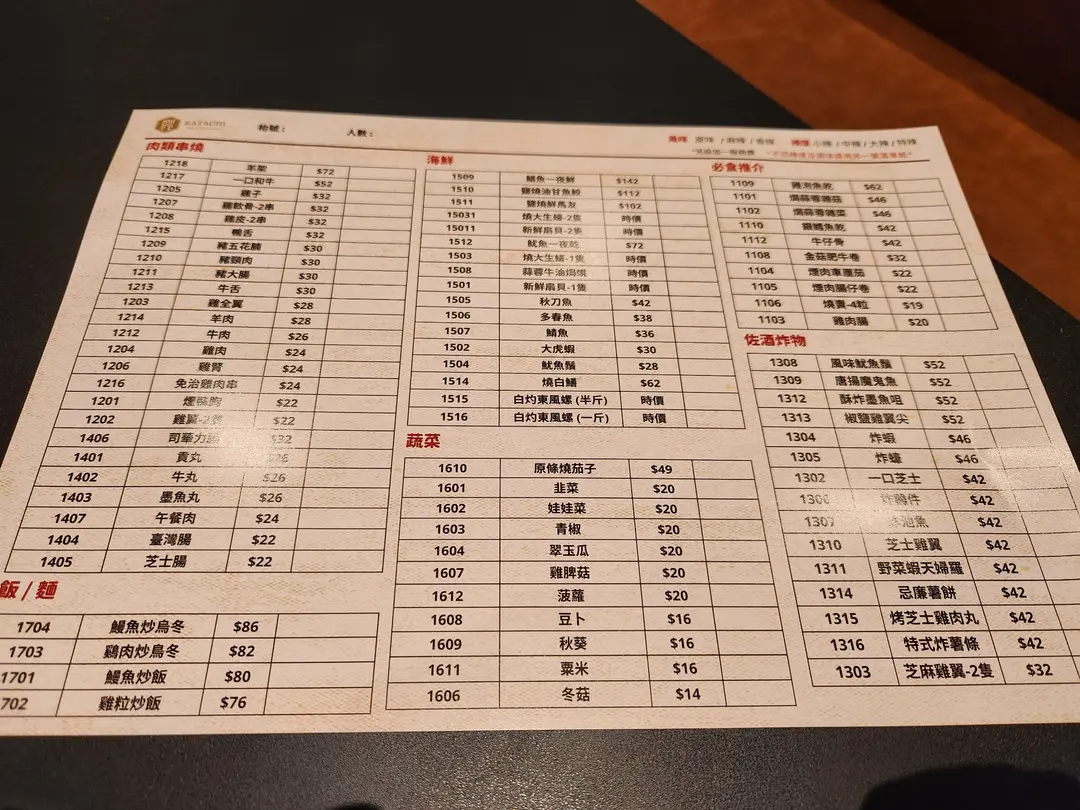 KATACHI
枱號：
人數：
肉類串燒
1218 羊架 $72
1217 一口和牛 $52
1205 雞子 $32
1207 雞軟骨-2串 $32
1208 雞皮-2串 $32
1215 鴨舌 $32
1209 豬五花腩 $30
1210 豬頸肉 $30
1211 豬大腸 $30
1213 牛舌 $30
1203 雞全翼 $28
1214 羊肉 $28
1212 牛肉 $26
1204 雞肉 $24
1206 雞腎 $24
1216 免治雞肉串 $24
1201 $22
1202 雞翼-2 $22
1406 司華力腸 $32
1401 貢丸 $26
1402 牛丸 $26
1403 墨魚丸 $26
1407 午餐肉 $24
1404 臺灣腸 $22
1405 芝士腸 $22
飯 / 麵
1704 鰻魚炒烏冬 $86
1703 鷄肉炒烏冬 $82
1701 鰻魚炒飯 $80
702 雞粒炒飯 $76
海鮮
1509 鯧魚一夜鮮 $142
1510 鹽燒油甘魚鮫 $112
1511 鹽燒鮮馬友 $102
15031 燒大生蠔-2隻 時價
15011 新鮮扇貝-2隻 時價
1512 魷魚一夜乾 $72
1503 燒大生蠔-1隻 時價
1508 蒜蓉牛油焗蜆 時價
1501 新鮮扇貝-1隻 時價
1505 秋刀魚 $42
1506 多春魚 $38
1507 鯖魚 $36
1502 大虎蝦 $30
1504 魷魚鬚 $28
1514 燒白鱔 $62
1515 白灼東風螺 (半斤) 時價
1516 白灼東風螺 (一斤) 時價
蔬菜
1610 原條燒茄子 $49
1601 韭菜 $20
1602 娃娃菜 $20
1603 青椒 $20
1604 翠玉瓜 $20
1607 雞脾菇 $20
1612 菠蘿 $20
1608 豆卜 $16
1609 秋葵 $16
1611 粟米 $16
1606 冬菇 $14
/ 麻辣 / 香辣 小辣 / 中辣 / 大辣 / 特辣
必食推介
1109 雞泡魚乾 $62
1101 焗蒜蓉雜菇 $46
1102 焗蒜蓉雜菜 $46
1110 銀鱈魚乾 $42
1112 牛仔骨 $42
1108 金菇肥牛卷 $32
1104 煙肉車厘茄 $22
1105 煙肉腸仔卷 $22
1106 燒賣-4粒 $19
1103 雞肉腸 $20
佐酒炸物
1308 風味魷魚鬚 $52
1309 唐揚魔鬼魚 $52
1312 酥炸墨魚咀 $52
1313 椒鹽雞翼尖 $52
1304 炸蝦 $46
1305 炸蠔 $46
1302 一口芝士 $42
1306 炸雞件 $42
1307 池魚 $42
1310 芝士雞翼 $42
1311 野菜蝦天婦羅 $42
1314 忌廉薯餅 $42
1315 烤芝士雞肉丸 $42
1316 特式炸薯條 $42
1303 芝麻雞翼-2隻 $32